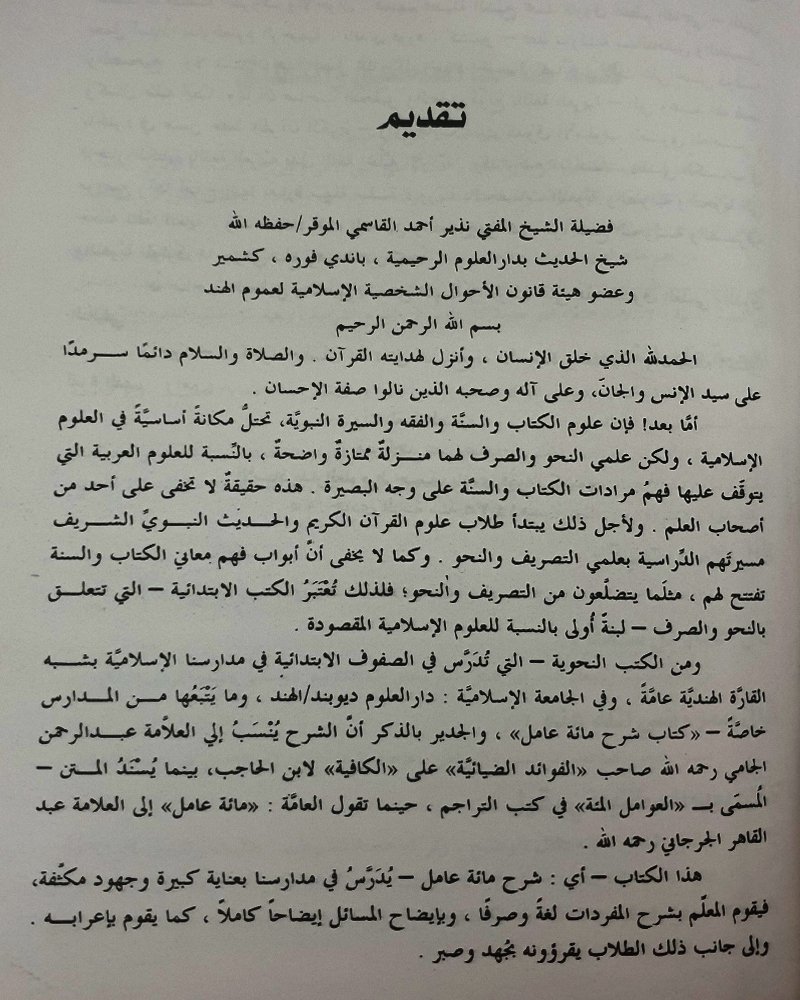 تقديم
فضيلة الشيخ المفتي نذير أحمد القاسمي الموقر/حفظه الله
شيخ الحديث بدارالعلوم الرحيمية ، باندي فوره ، كشمير
وعضو هيئة قانون الأحوال الشخصية الإسلامية لعموم الهند
بسم الله الرحمن الرحيم
الحمدلله الذي خلق الإنسان ، وأنزل لهدايته القرآن . والصلاة والسلام دائمًا سـرمدًا
على سيد الإنس والجانّ، وعلى آله وصحبه الذين نالوا صفة الإحسان .
أمَّا بعد! فإن علوم الكتاب والسنَّة والفقه والسيرة النبويَّة، تحتلُّ مكانةً أساسيَّةً في العلوم
الإسلامية ، ولكن علمي النحو والصرف لهما منـزلةٌ ممتازةٌ واضحةٌ ، بالنِّسبة للعلوم العربية التي
يتوقَّف عليها فهمُ مرادات الكتاب والسنَّة على وجه البصيرة . هذه حقيقةٌ لا تخفى على أحد من
أصحاب العلم . ولأجل ذلك يبتدأ طلاب علوم القرآن الكريم والحديث النبـويِّ الشـريف
مسيرتَهم الدِّراسية بعلمي التصريف والنحو . وكما لا يخفى أنَّ أبواب فهم معاني الكتاب والسنة
تفتتح لهم ، مثلَما يتضلّعون من التصريف والنحو؛ فلذلك تُعْتَبَرُ الكتب الابتدائية – التي تتعلـق
بالنحو والصرف – لبنةً أُولى بالنسبة للعلوم الإسلامية المقصودة .
ومن الكتب النحوية – التي تُدَرَّس في الصفوف الابتدائية في مدارسنا الإسلاميَّة بشـبه
القارَّة الهنديَّة عامَّةً ، وفي الجامعة الإسلاميَّة : دارالعلوم ديوبند/الهند ، وما يَتْبَعُها مـن المـدارس
خاصَّةً – «كتاب شرح مائة عامل» ، والجدير بالذكر أنَّ الشرح يُنْسَبُ إلي العلاَّمة عبـدالرحمن
الجامي رحمه الله صاحب «الفوائد الضيائيَّة» على «الكافية» لابن الحاجب، بينما يُسـْنَدُ المـتن –
المُسمَّى بـ «العوامل المئة» في كتب التراجم ، حينما تقول العامَّة : «مائة عامل» إلى العلامة عبد
القاهر الجرجاني رحمه الله .
هذا الكتاب – أي : شرح مائة عامل – يُدَرَّسُ في مدارسنا بعناية كبيرة وجهود مكثّفة،
فيقوم المعلّم بشرح المفردات لغةً وصرفًا ، وبإيضاح المسائل إيضاحاً كاملاً ، كما يقوم بإعرابـه .
وإلى جانب ذلك الطلاب يقرؤونه بجُهد وصبر .